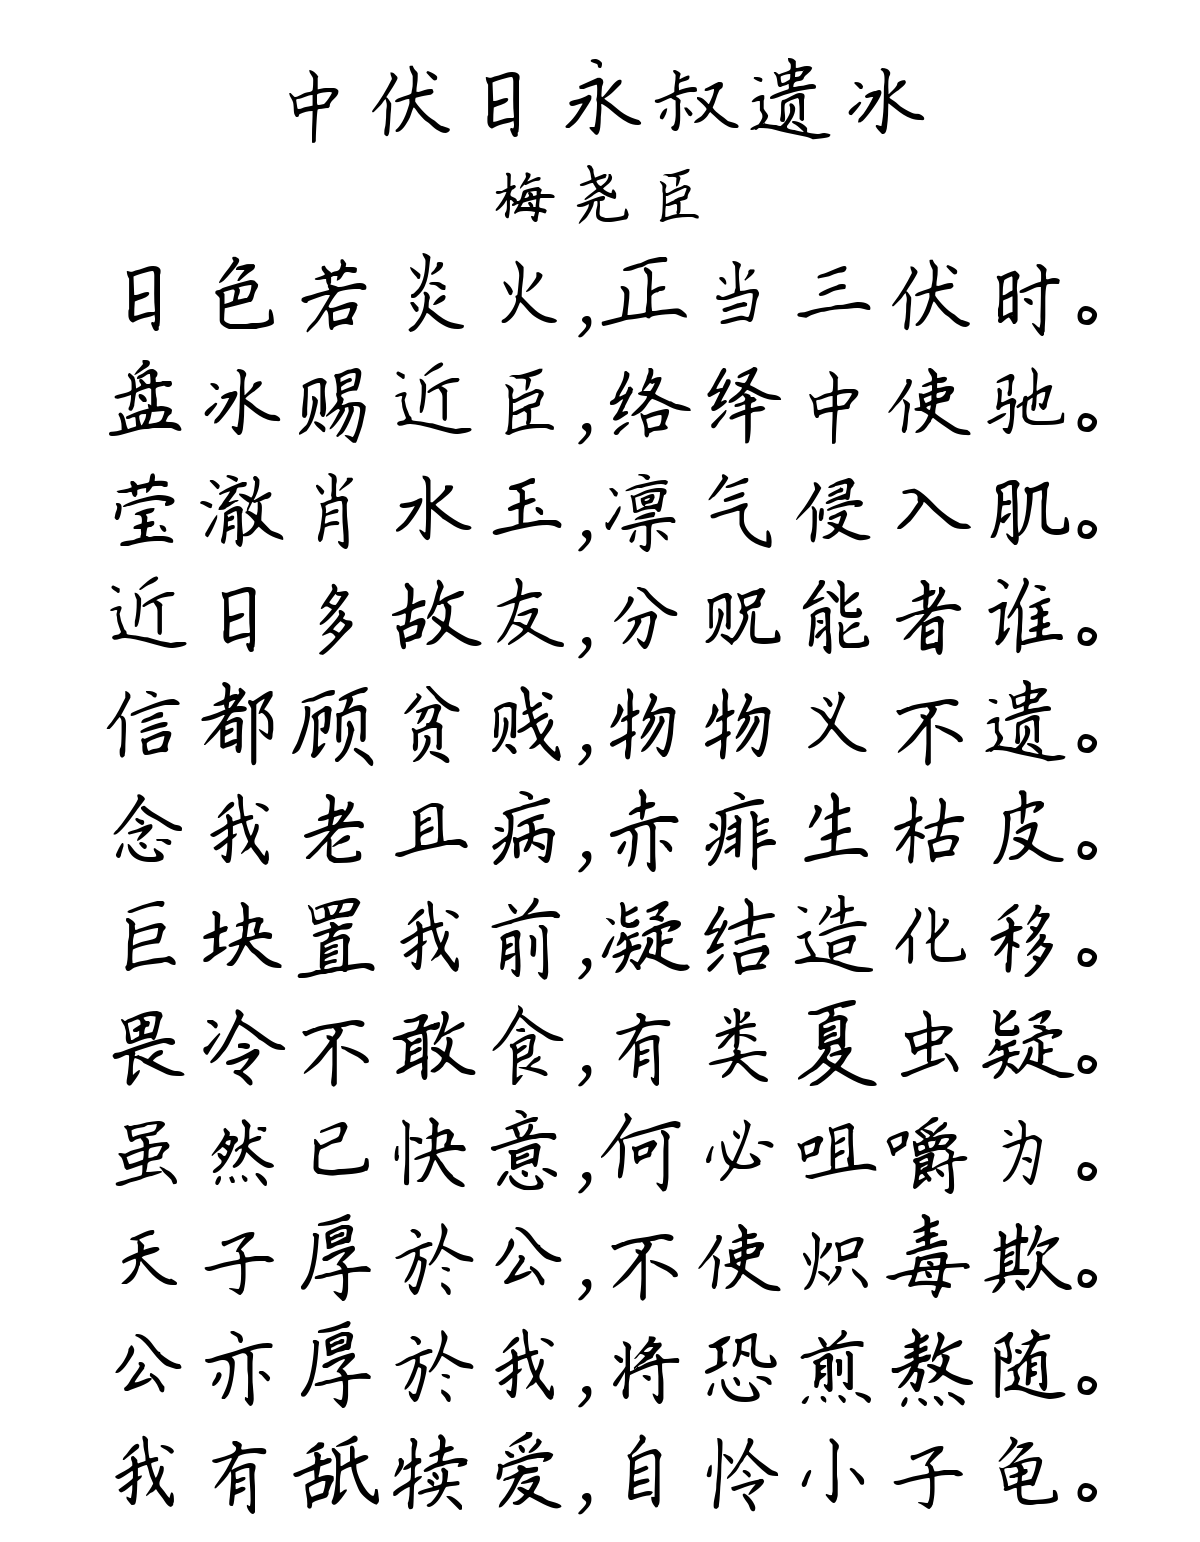 中伏日永叔遗冰
梅尧臣
日色若炎火,正当三伏时。
盘冰赐近臣,络绎中使驰。
莹澈肖水玉,凛气侵入肌。
近日多故友,分贶能者谁。
信都顾贫贱,物物义不遗。
念我老且病,赤痱生枯皮。
巨块置我前,凝结造化移。
畏冷不敢食,有类夏虫疑。
虽然已快意,何必咀嚼为。
天子厚於公,不使炽毒欺。
公亦厚於我,将恐煎熬随。
我有舐犊爱,自怜小子龟。